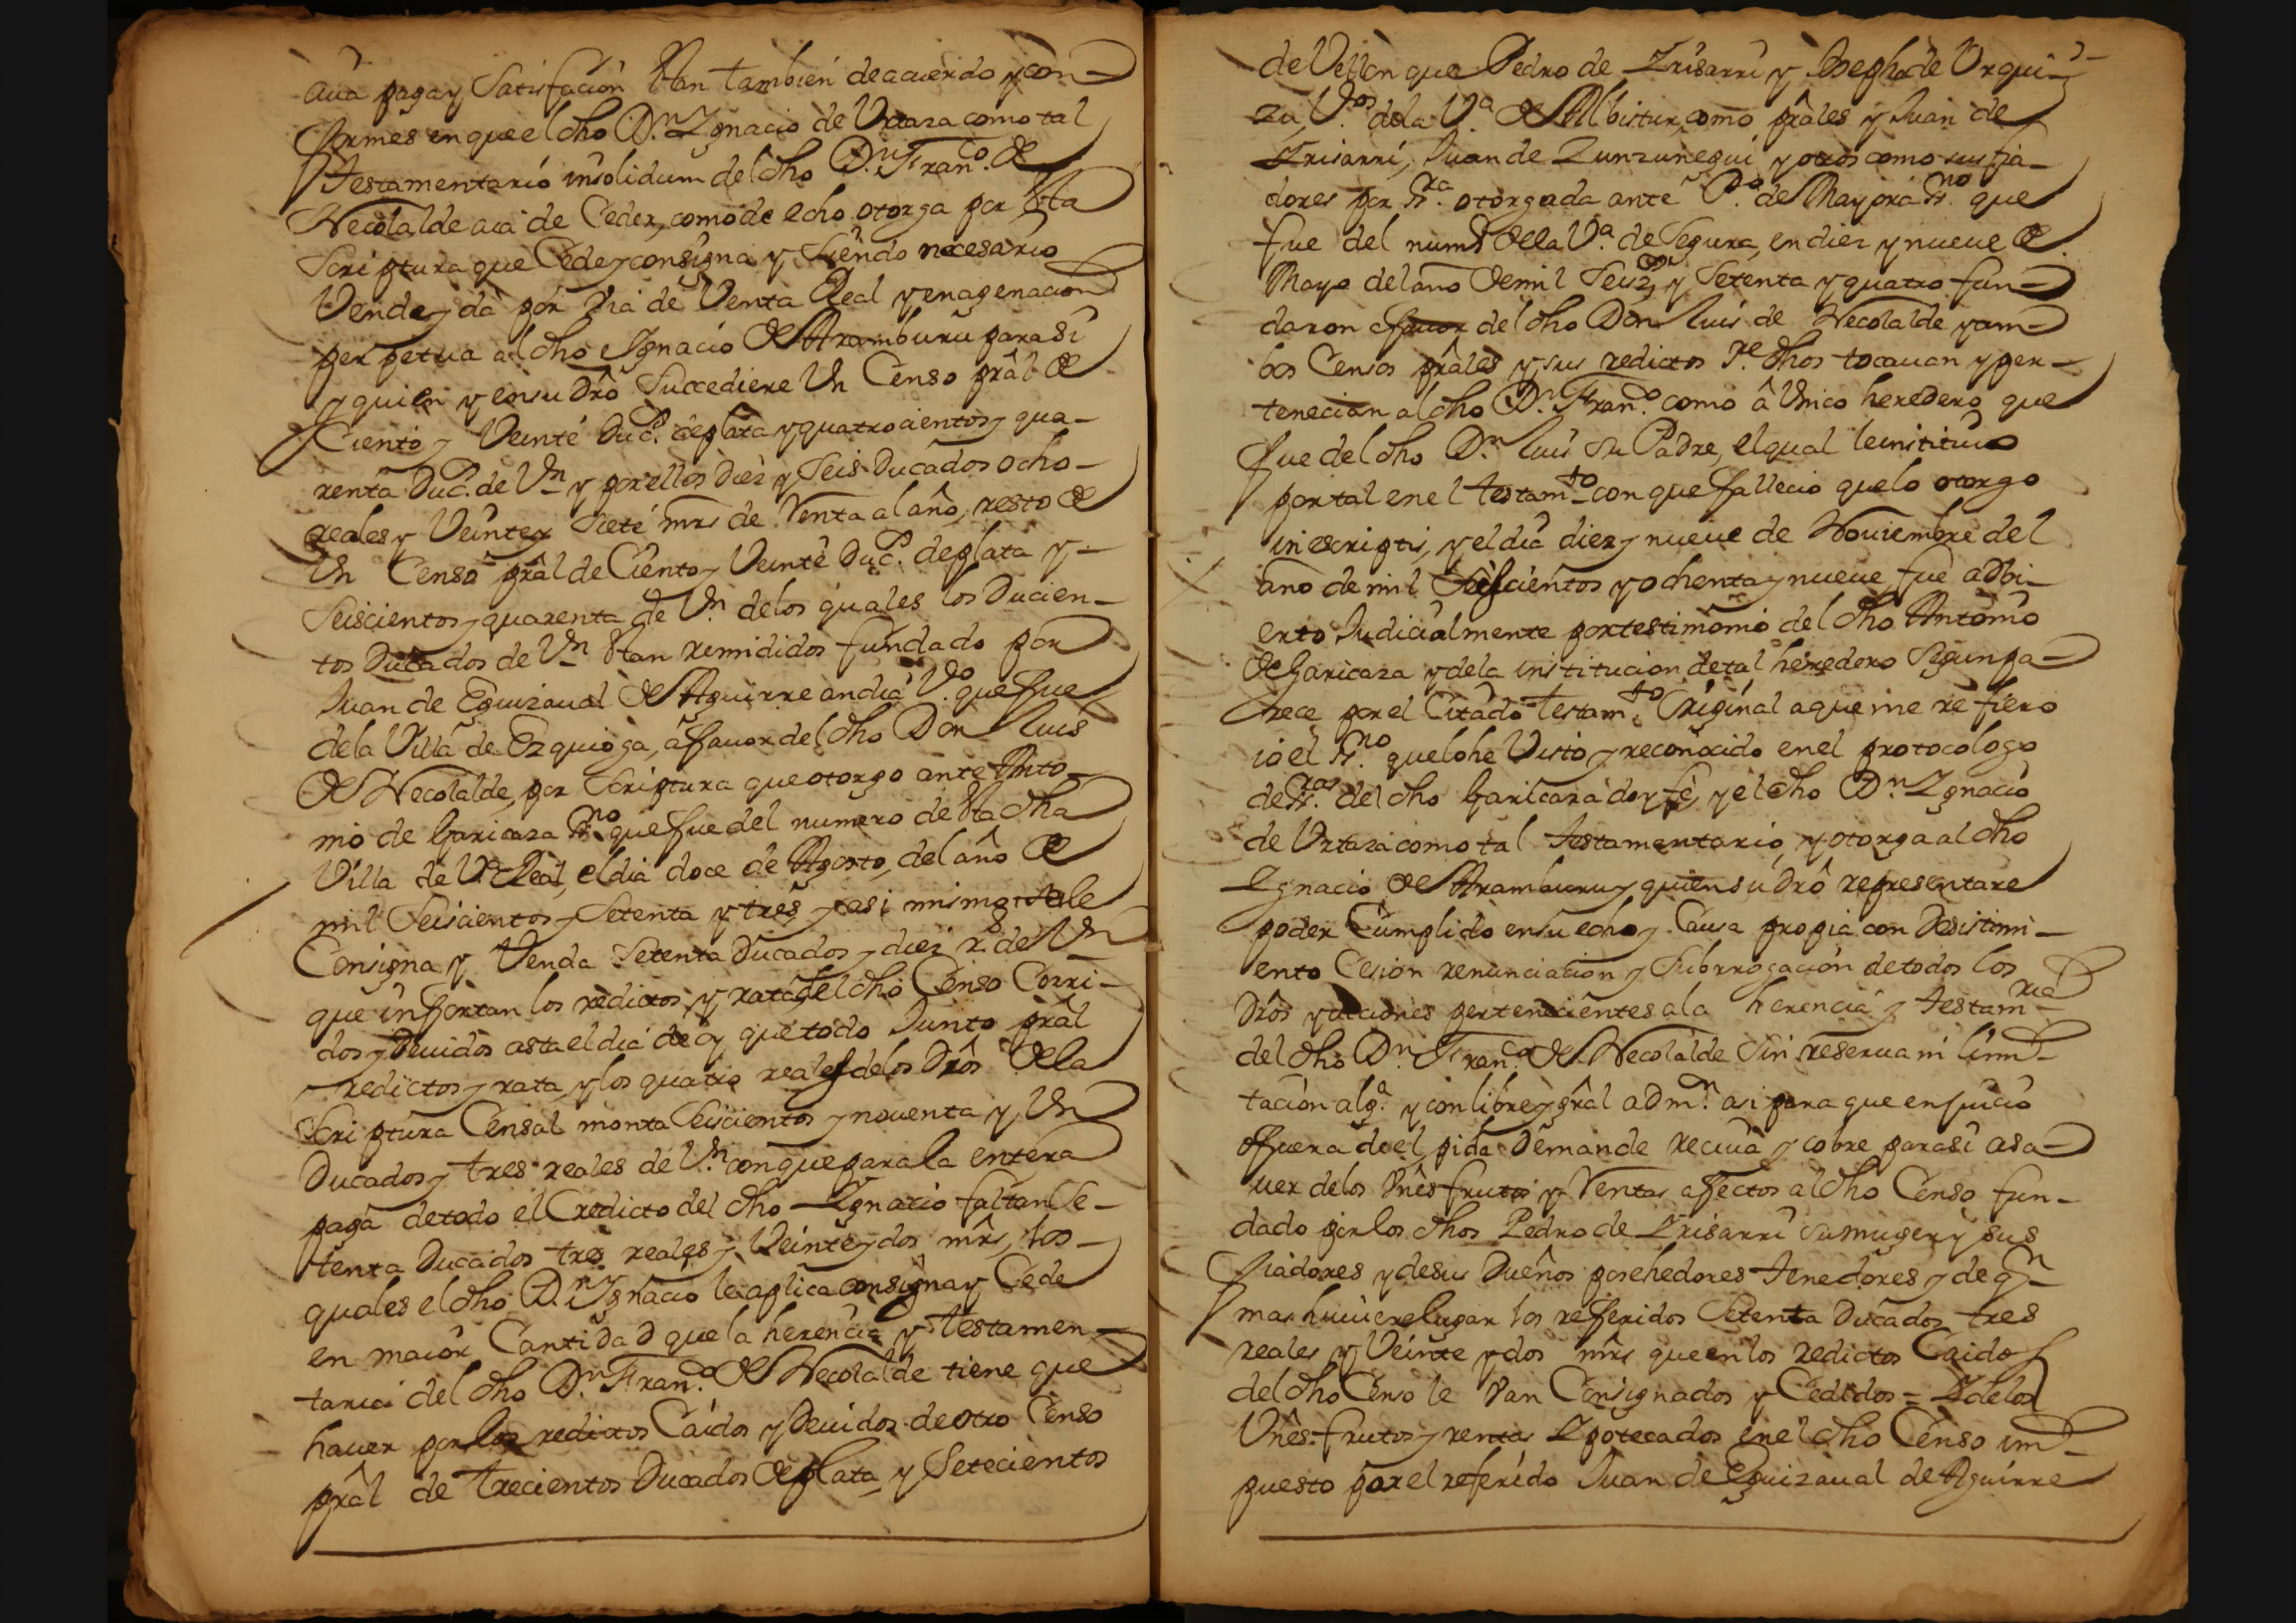 aua paga y Satisfacion Stan tambien de acuerdo y con-
formes en que el dho Dn. Ygnacio de Urtaza como tal
testamentario insolidum del dho Dn. Franco. de
Necolalde aia de Ceder, como de echo otorga por Sta
Scriptura que Cede y consigna y Siendo necesario
Vende y da por via de Venta Real y enagenacion
perpetua al dho Ygnacio de Aramburu para si
y quien y en su dro Succediere Un Censo prãl de
Ciento y Veinte Ducs. de plata y quatrocientos y qua-
renta Ducs. de Vn y por ellos Diez y Seis Ducados ocho-
reales y Veinte y Siete mrs de Renta al año, resto de
Un Censo prãl de Ciento y Veinte Ducs. de plata y-
Seiscientos y quarenta de Vn. de los quales los Ducien-
tos Ducados de Vn Stan remididos fundado por
Juan de Eguizaual de Aguirre andia Vo. que fue
de la Villa de Ezquioga, a fauor del dho Don Luis
de Necolalde, por Scriptura que otorgo ante Anto
nio de Garicaza Sno. que fue del numero de Sta dha
Villa de Va. Real, el dia doce de Agosto, del año de
mil Seiscientos y Setenta y tres, y asi mismo le
Consigna y Venda Setenta Ducados y diez rs. de Vn
que inportan los redictos, y rata del dho Censo Corri-
dos y Deuidos asta el dia de oy que todo Junto prãl
redictos y rata, y los quatro reales de los Dros de la
Scriptura Censal monta Seiscientos y nouenta y Un
Ducados y tres reales de Vn. con que para la entera
paga de todo el Credicto del dho Ygnacio faltan Se-
tenta Ducados tres reales y Veinte y dos mrs, los-
quales el dho Dn. Ygnacio le aplica consigna y Cede
en maior Cantidad que la herencia y testamen-
taria del dho Dn. Franco. de Necolalde tiene que
hauer por los redictos Caidos y Deuidos de otro Censo
prãl de trecientos Ducados de plata, y Setecientos
de Vellon que Pedro de Yrisarri y Josepha de Urqui-
zu, Vos. de la Va. de Albistur, como prãles y Juan de
Yrisarri, Juan de Zunzunegui y otros como sus fia-
dores por Sra. otorgada ante Po. de Mayora Sno. que
fue del numo. de la Va. de Segura, en diez y nueue de
Mayo del año de mil Seiscs. y Setenta y quatro fun-
daron a fauor del dho Don Luis de Necolalde y am-
bos Censos prãles y sus redictos Re. dhos tocauan y per-
tenecian al dho Dn. Franco. como â Unico heredero que
fue del dho Dn. Luis Su Padre, el qual le instituio
por tal en el testamto. con que fallecio que lo otorgo
in escriptis, y el dia diez y nueue de Nouiembre del
año de mil Seiscientos y ochenta y nueue, fue adbi-
erto Judicialmente por testimonio del dho Antonio
de Garicaza y de la institucion de tal heredero Segun pa-
rece por el Citado testamto. Original a que me refiero
io el Sno. que lo he Visto y reconocido en el protocologo
de Sras. del dho Garicaza doy fe, y el dho Dn. Ygnacio
de Urtaza como tal testamentario, y otorga al dho
Ygnacio de Aramburu y quien su dro representare
poder Cumplido en su echo y Causa propia con Desistimi-
ento Cesion renunciacion y Subrrogacion de todos los
Dros y acciones pertenecientes a la herencia y testamria
del dho Dn. Franco. de Necolalde Sin reserua ni limi-
tacion alga. y con libre y gral admn. asi para que en juicio
o fuera de el, pida Demande reciua y cobre para si asa-
uer de los Vnês frutos y Rentas afectos al dho Censo fun-
dado por los dhos Pedro de Yrisarri Su muger y sus
fiadores y de sus Dueños posehedores tenedores y de qn
mas huuiere lugar los referidos Setenta Ducados tres
reales y Veinte y dos mrs que en los redictos Caidos
del dho Censo le Van Consignados y Cedidos = Y de los
Vnês frutos y rentas Ypotecados en el dho Censo im-
puesto por el referido Juan de Eguizaual de Aguirre